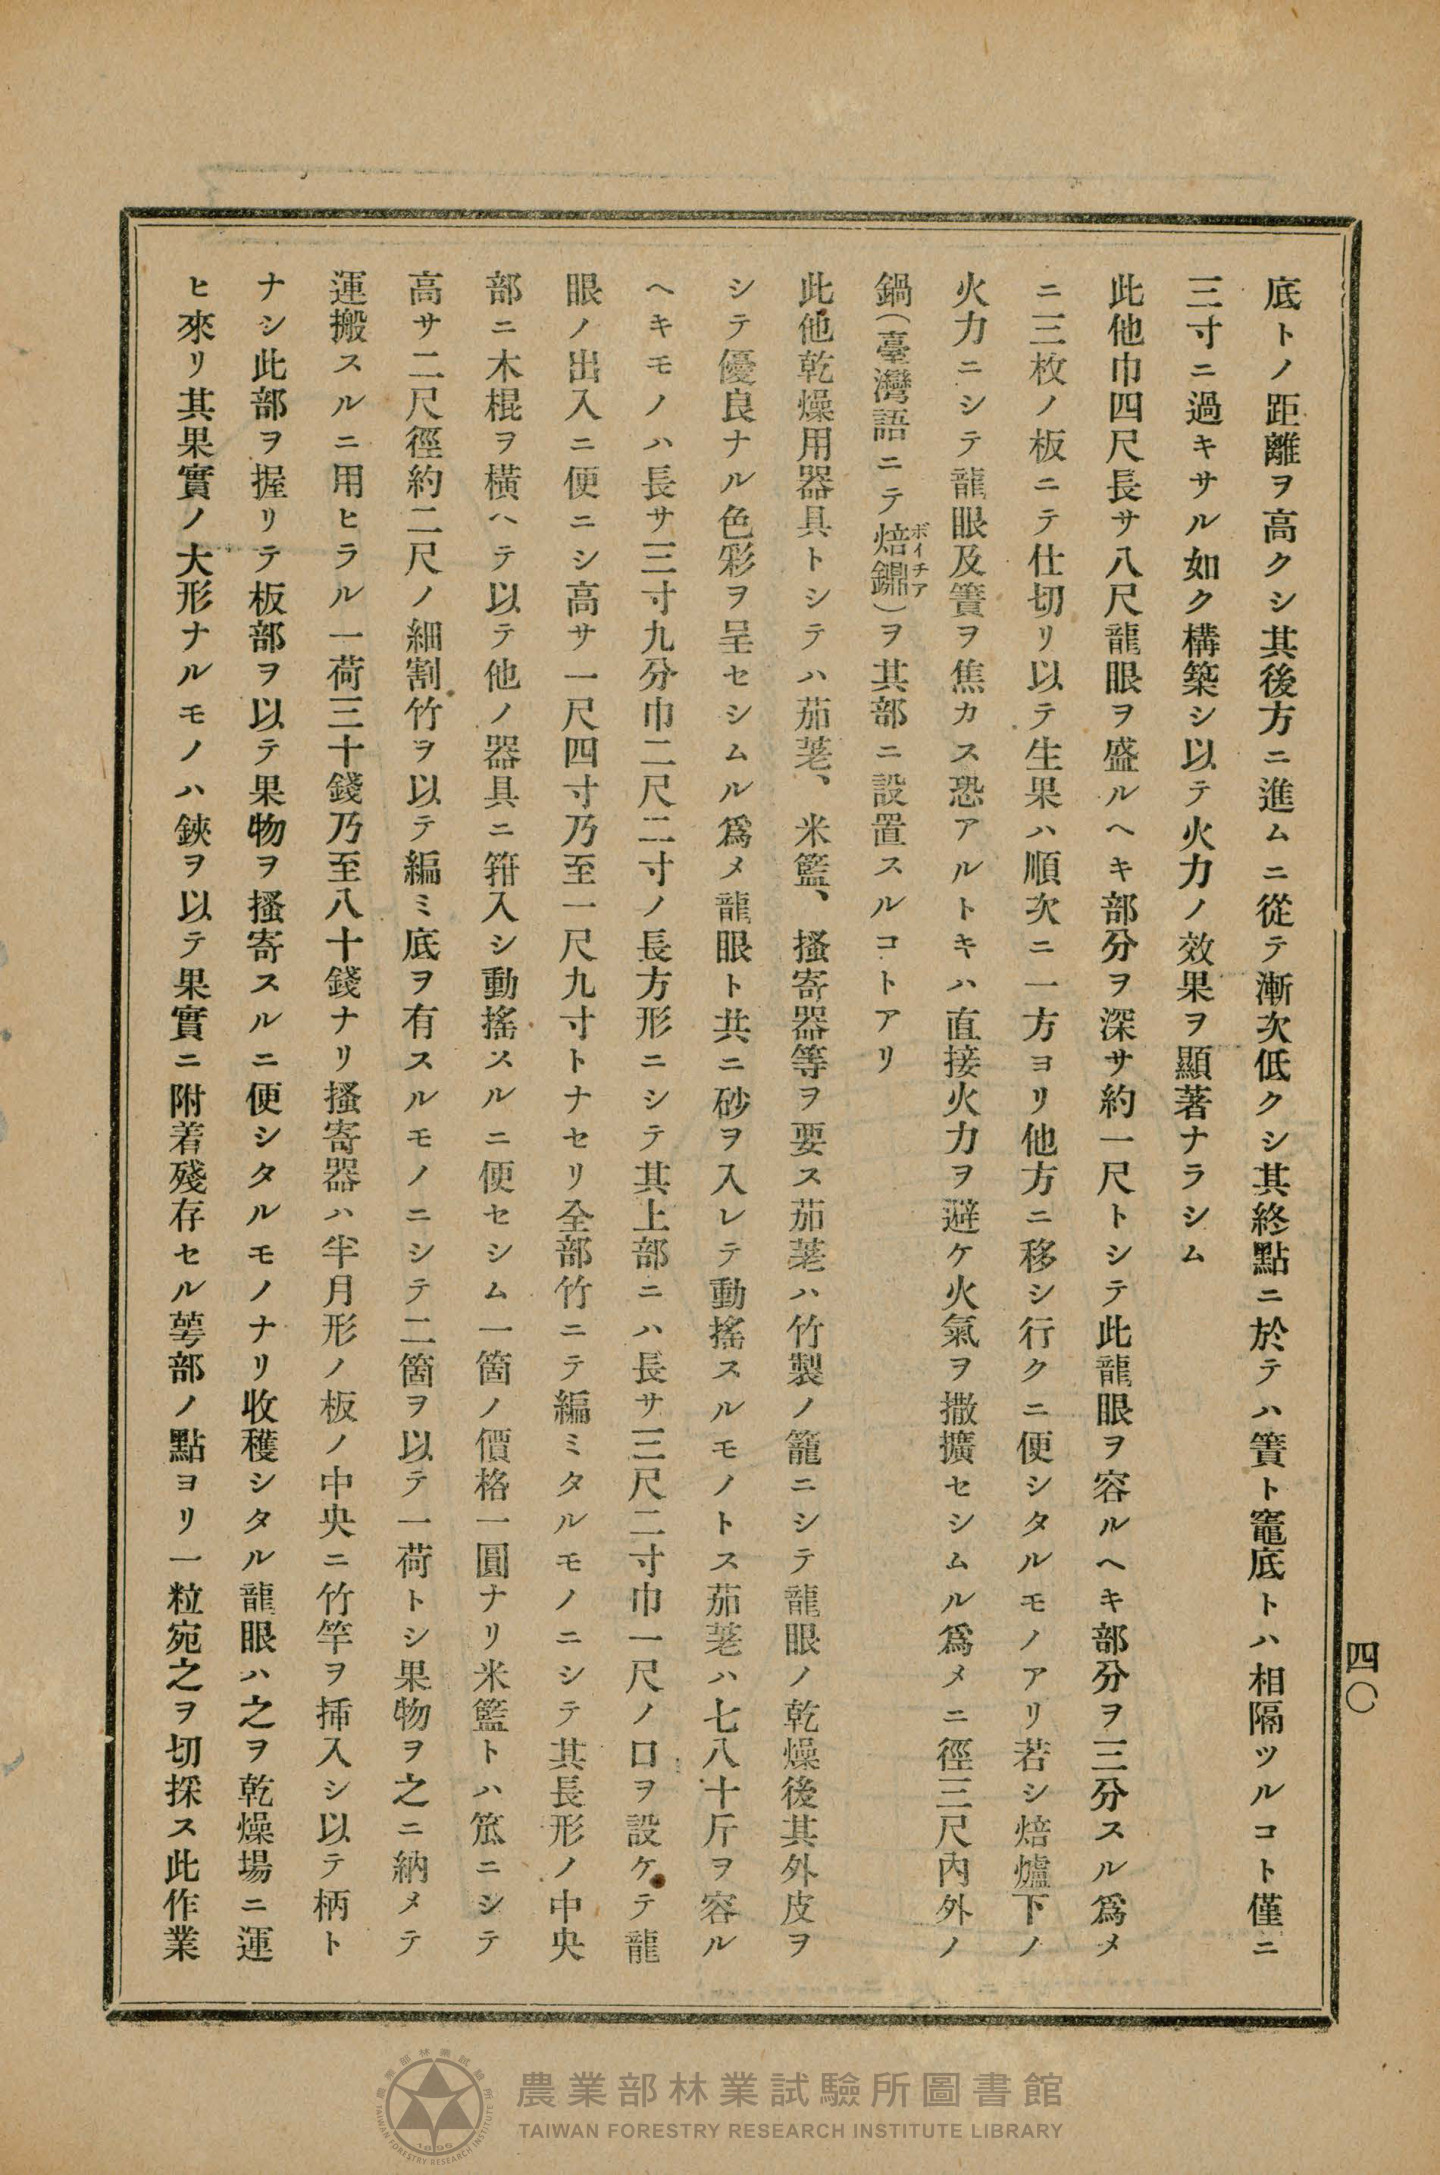 四〇
底トノ距離ヲ高クシ其後方ニ進ムニ從テ漸次低クシ其終點ニ於テハ簀ト竈底トハ相隔ツルコト僅ニ
三寸ニ過キサル如ク構築シ以テ火力ノ效果ヲ顯著ナラシム
此他巾四尺長サ八尺龍眼ヲ盛ルヘキ部分ヲ深サ約一尺トシテ此龍眼ヲ容ルヘキ部分ヲ三分スル爲メ
ニ三枚ノ板ニテ仕切リ以テ生果ハ順次ニ一方ヨリ他方ニ移シ行クニ便シタルモノアリ若シ焙爐下ノ
火力ニシテ龍眼及簀ヲ焦カス恐アルトキハ直接火力ヲ避ケ火氣ヲ撒擴セシムル爲メニ徑三尺內外ノ
鍋(臺灣語ニテ焙鐤)ヲ其部ニ設置スルコトアリ
ボイチア
此他乾燥用器具トシテハ茄荖、米籃、搔寄器等ヲ要ス茄荖ハ竹製ノ籠ニシテ龍眼ノ乾燥後其外皮ヲ
シテ優良ナル色彩ヲ呈セシムル爲メ龍眼ト共ニ砂ヲ入レテ動搖スルモノトス茄荖ハ七八十斤ヲ容ル
ヘキモノハ長サ三寸九分巾二尺二寸ノ長方形ニシテ其上部ニハ長サ三尺二寸巾一尺ノ口ヲ設ケテ龍
眼ノ出入ニ便ニシ高サ一尺四寸乃至一尺九寸トナセリ全部竹ニテ編ミタルモノニシテ其長形ノ中央
部ニ木棍ヲ橫ヘテ以テ他ノ器具ニ箝入シ動搖スルニ便セシム一箇ノ價格一圓ナリ米籃トハ笊ニシテ
高サ二尺徑約二尺ノ細割竹ヲ以テ編ミ底ヲ有スルモノニシテ二箇ヲ以テ一荷トシ果物ヲ之ニ納メテ
運搬スルニ用ヒラル一荷三十錢乃至八十錢ナリ搔寄器ハ半月形ノ板ノ中央ニ竹竿ヲ揷入シ以テ柄ト
ナシ此部ヲ握リテ板部ヲ以テ果物ヲ搔寄スルニ便シタルモノナリ收穫シタル龍眼ハ之ヲ乾燥場ニ運
ヒ來リ其果實ノ大形ナルモノハ鋏ヲ以テ果實ニ附着殘存セル萼部ノ點ヨリ一粒宛之ヲ切採ス此作業
農業部林業試驗所圖書館
TAIWAN FORESTRY RESEARCH INSTITUTE LIBRARY
農業部林業試驗所
TAIWAN FORESTRY RESEARCH INSTITUTE
1896